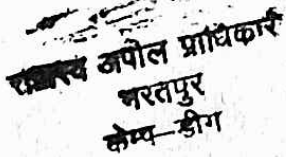 राजस्व अपील प्राधिकारी
भरतपुर
केम्प-डीग